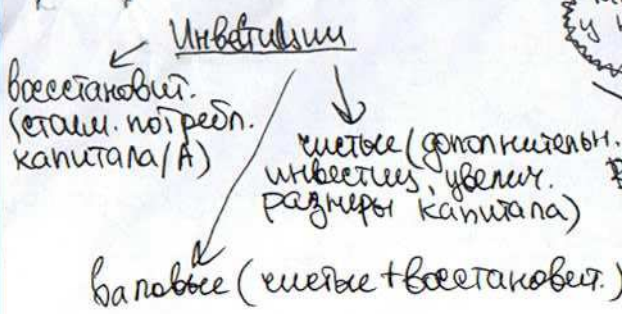 Инвестиции
восстановит.
(стоим. потребл.
капитала/А)
чистые (дополнительн.
инвестиц, увелич.
размеры капитала)
валовые (чистые + восстановит.)